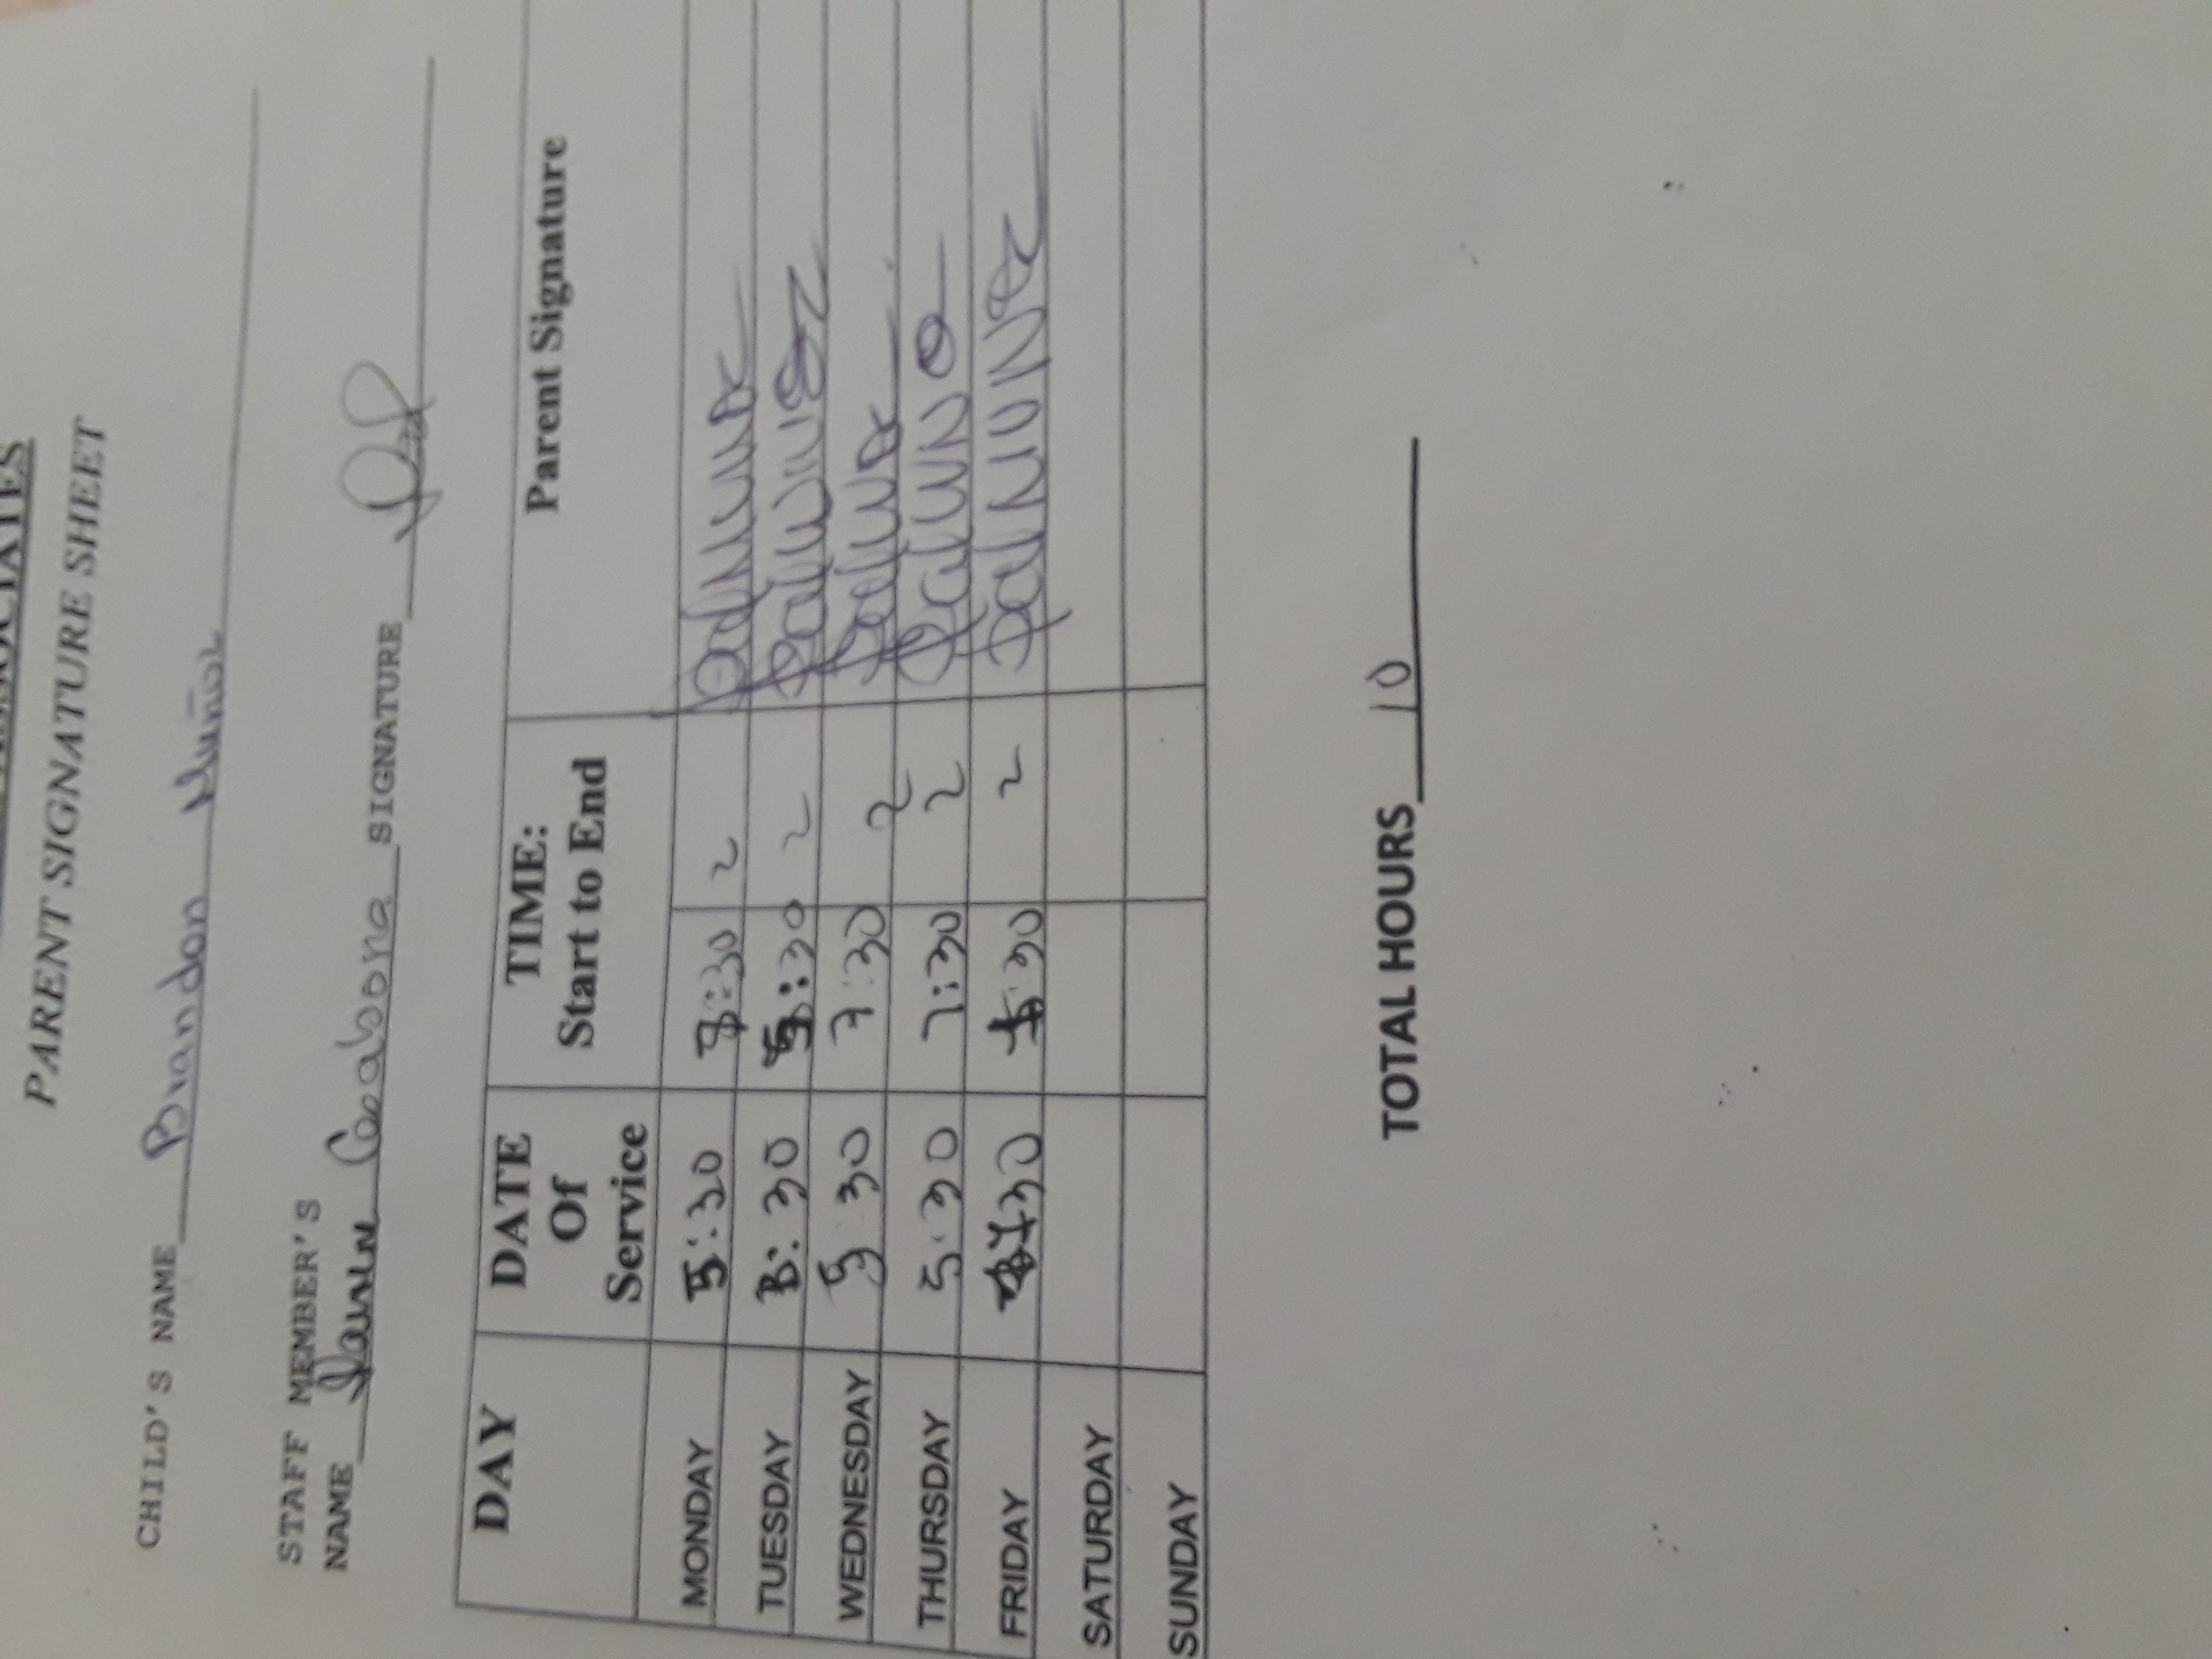 PARENT SIGNATURE SHEET
CHILD'S NAME Brandon Muñoz
STAFF MEMBER'S
NAME Casabona SIGNATURE
DAY DATE Of Service TIME: Start to End Parent Signature
MONDAY 5:30 :30 2
TUESDAY 3:30 5:30 2
WEDNESDAY 5 30 7:30 2
THURSDAY 5:30 7:30 2
FRIDAY 30 :30 2
SATURDAY
SUNDAY
TOTAL HOURS 10